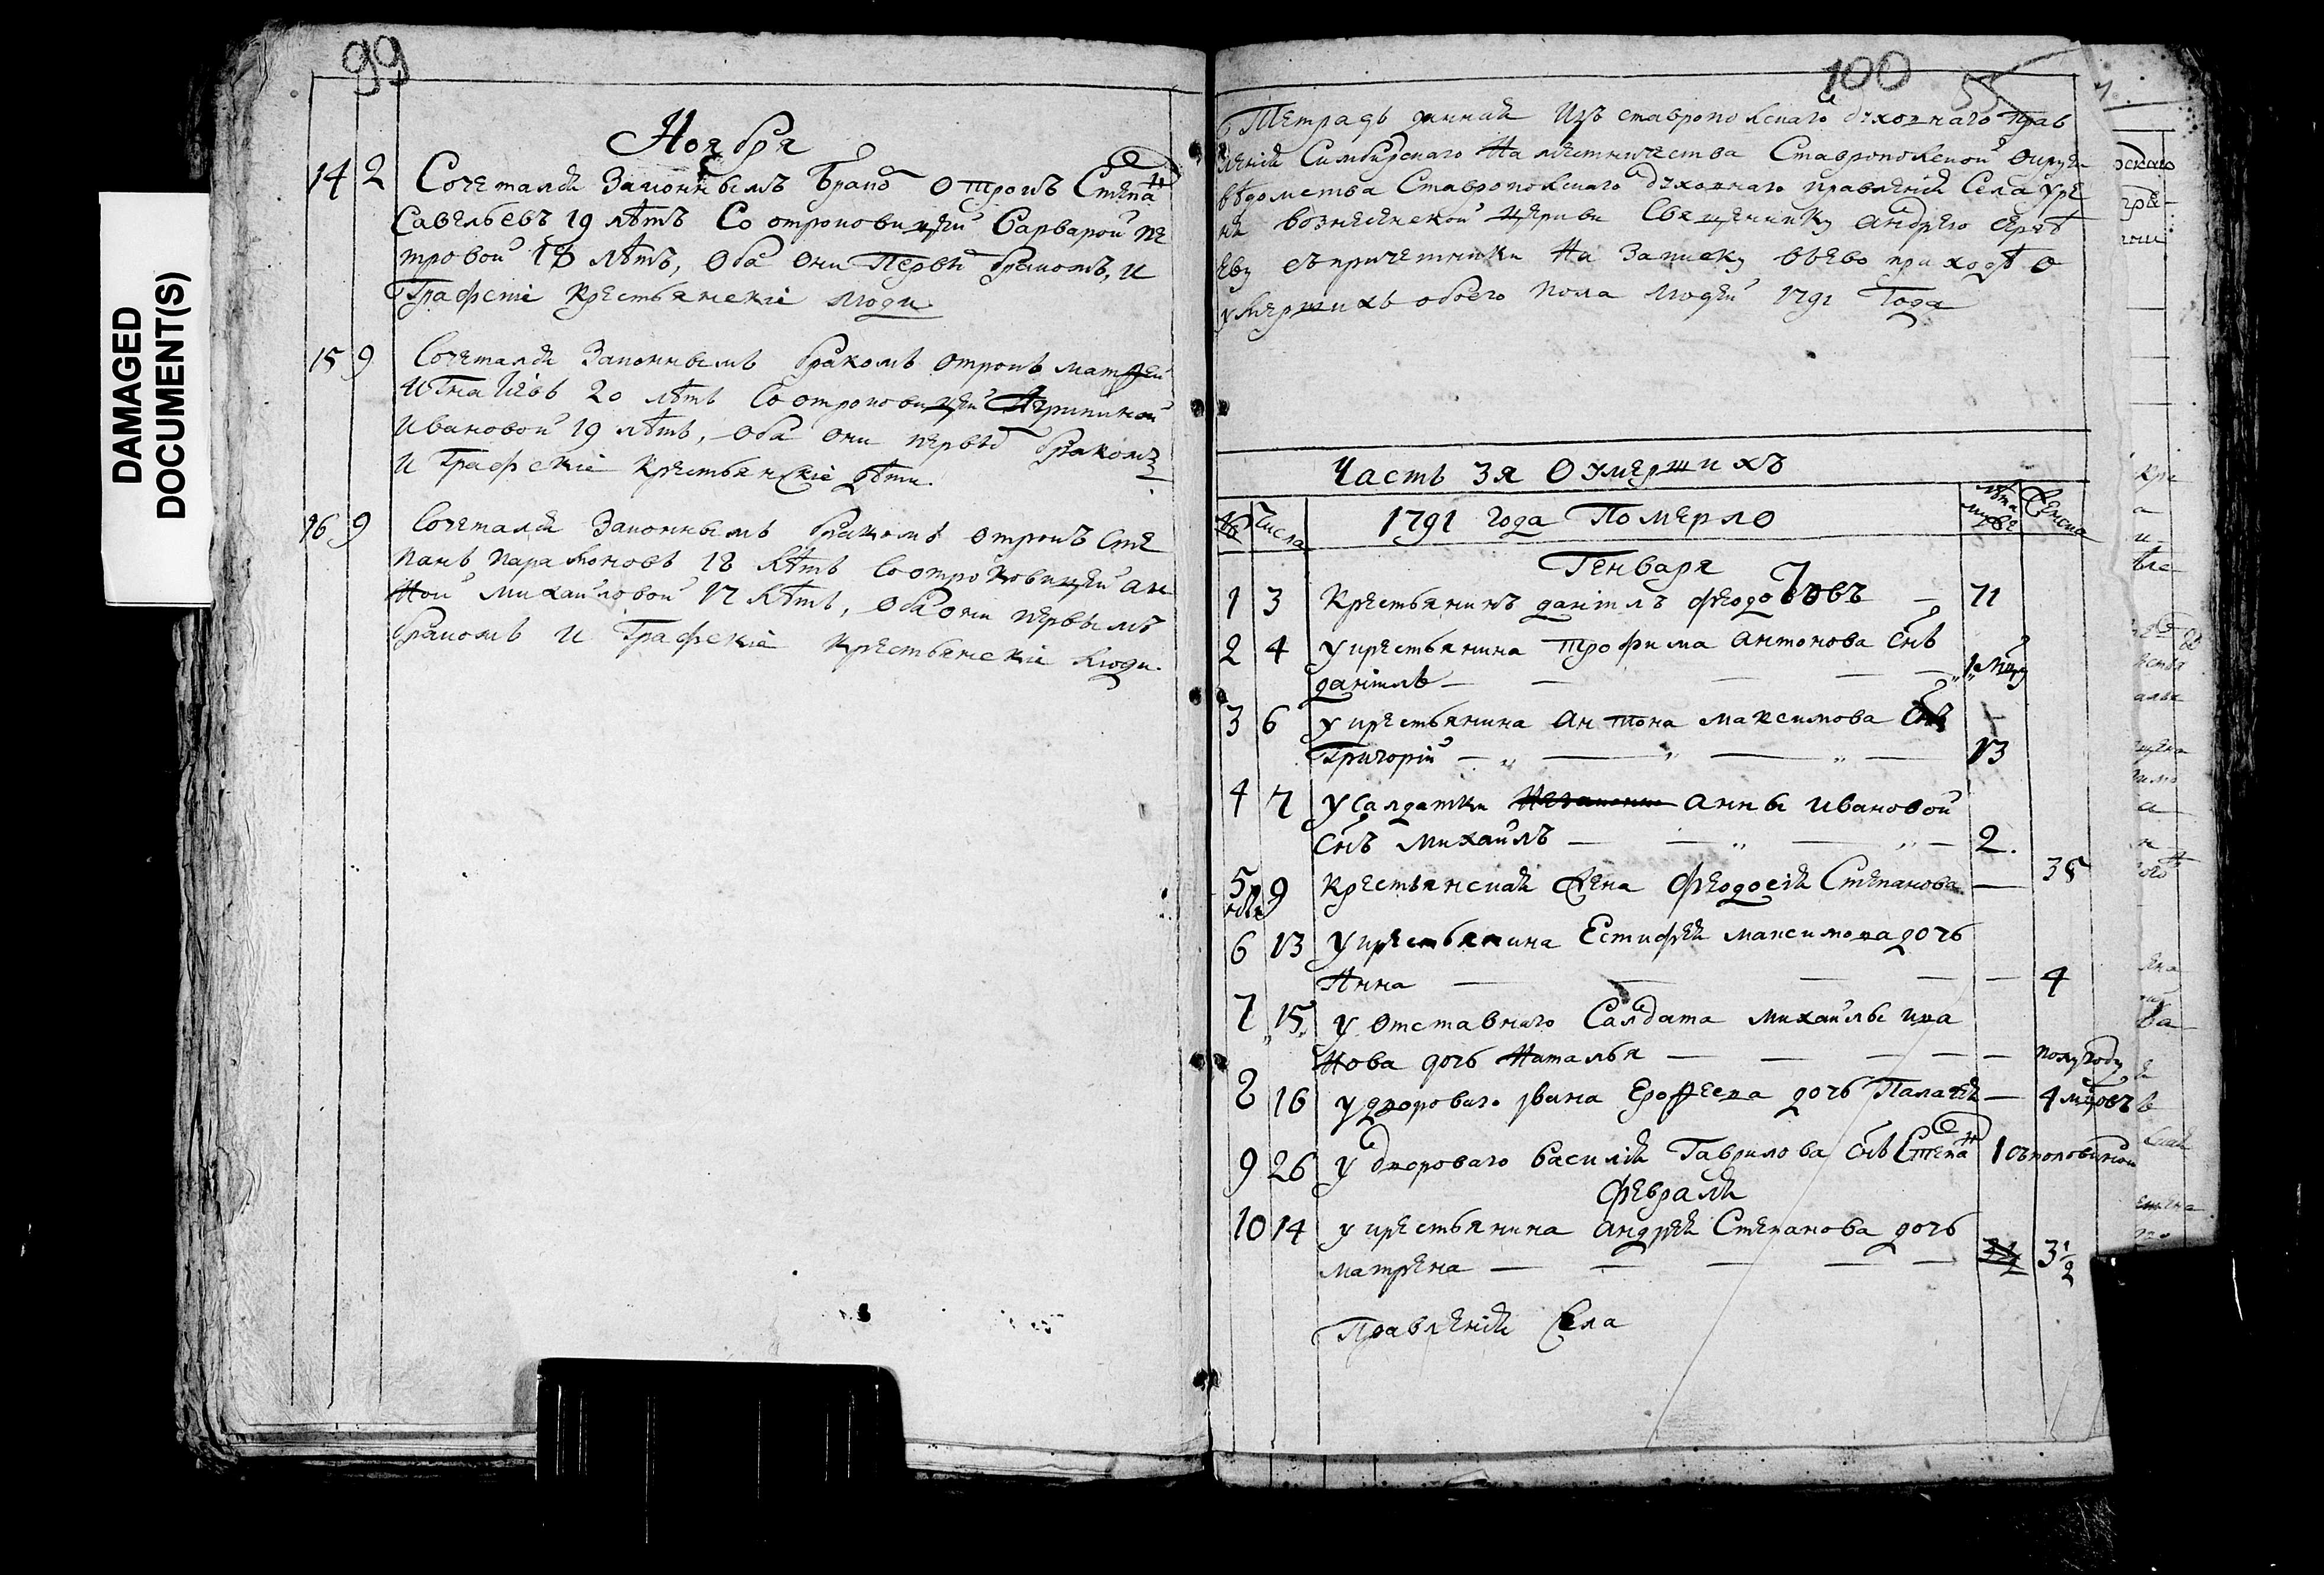 DAMAGED
DOCUMENT(S)
99
Ноября
14 2 Сочетался Законнымъ Бракоⷨ Отрокъ Степаⷩ
Савельевъ 19 лѣтъ Со отроковицей Варварой Пе
тровой 18 лѣтъ, Оба они Первыⷨ бракомъ, и
Графскіе Крестьянскіе люди.
15 9 Сочетался Законнымъ бракомъ отрокъ Матфей
Игнатьевъ 20 лѣтъ Со отроковицей Агрипиной
Ивановой 19 лѣтъ, оба они первыⷨ бракомъ
и Графскіе Крестьянскіе дѣти.
16 9 Сочетался Законнымъ бракомъ отрокъ Сте
панъ Парамоновъ 18 лѣтъ со отроковицей Ан
ной Михайловой 17 лѣтъ, оба они первымъ
бракомъ и Графскіе крестьянскіе люди.
100
55
Тетрадь данная Изъ ставропольскаго духовнаго прав
ленія Симбирскаго Намѣстничества Ставропольской округи
вѣдомства Ставропольскаго духовнаго правленія Села Уре
ня вознесенской церкви Священнику Андрею
еву съ причетники На Записку въ ево приходѣ о
умершихъ обоего пола людей 1791 Года
Часть 3я О умершихъ
№ Числа 1791 года Померло лѣта мужеⷵ женска
Генваря
1 3 Крестьянинъ данілъ феодотовъ — 71
2 4 у крестьянина трофима антонова сн҃ъ
данілъ — — — — 1 мц҃у
3 6 у крестьянина Антона максимова сн҃ъ
Григорій — — — — 13
4 7 у Салдатки Анны Ивановой
сн҃ъ Михаилъ — — — 2.
5 9 Крестьянская жена Феодосія Степанова — 38
6 13 у крестьянина Естифея максимова дочь
Анна — — — — 4
7 15 у отставнаго Салдата михаилы ива
нова дочь Наталья — — — — полугоду
8 16 у двороваго Ерофеева дочь Палагея — 4 мц҃овъ
9 26 у двороваго василія Гаврилова сн҃ъ Степаⷩ 1 съ половиной
февраля
10 14 у крестьянина андрея Степанова дочь
матрена — — — — 3 1/2
Правленія Села